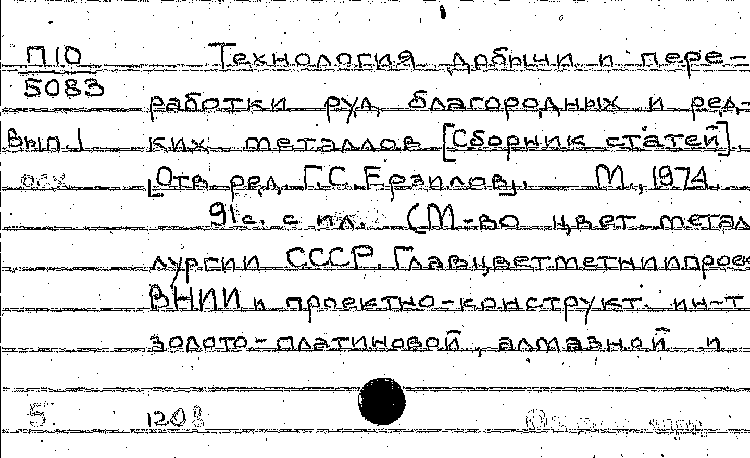 П10 Технология добычи и пере-
5083
работки руд благородных и ред-
Вып.1 ких металлов [Сборник статей].
[Отв. ред. Г.С. Ерзилов]. М., 1974.
91с. с ил. (М-во цвет. метал
лургии СССР. Главцветметниипроек
ВНИИ и проектно-конструкт. ин-т
золото-платиновой, алмазной и
5. 1208